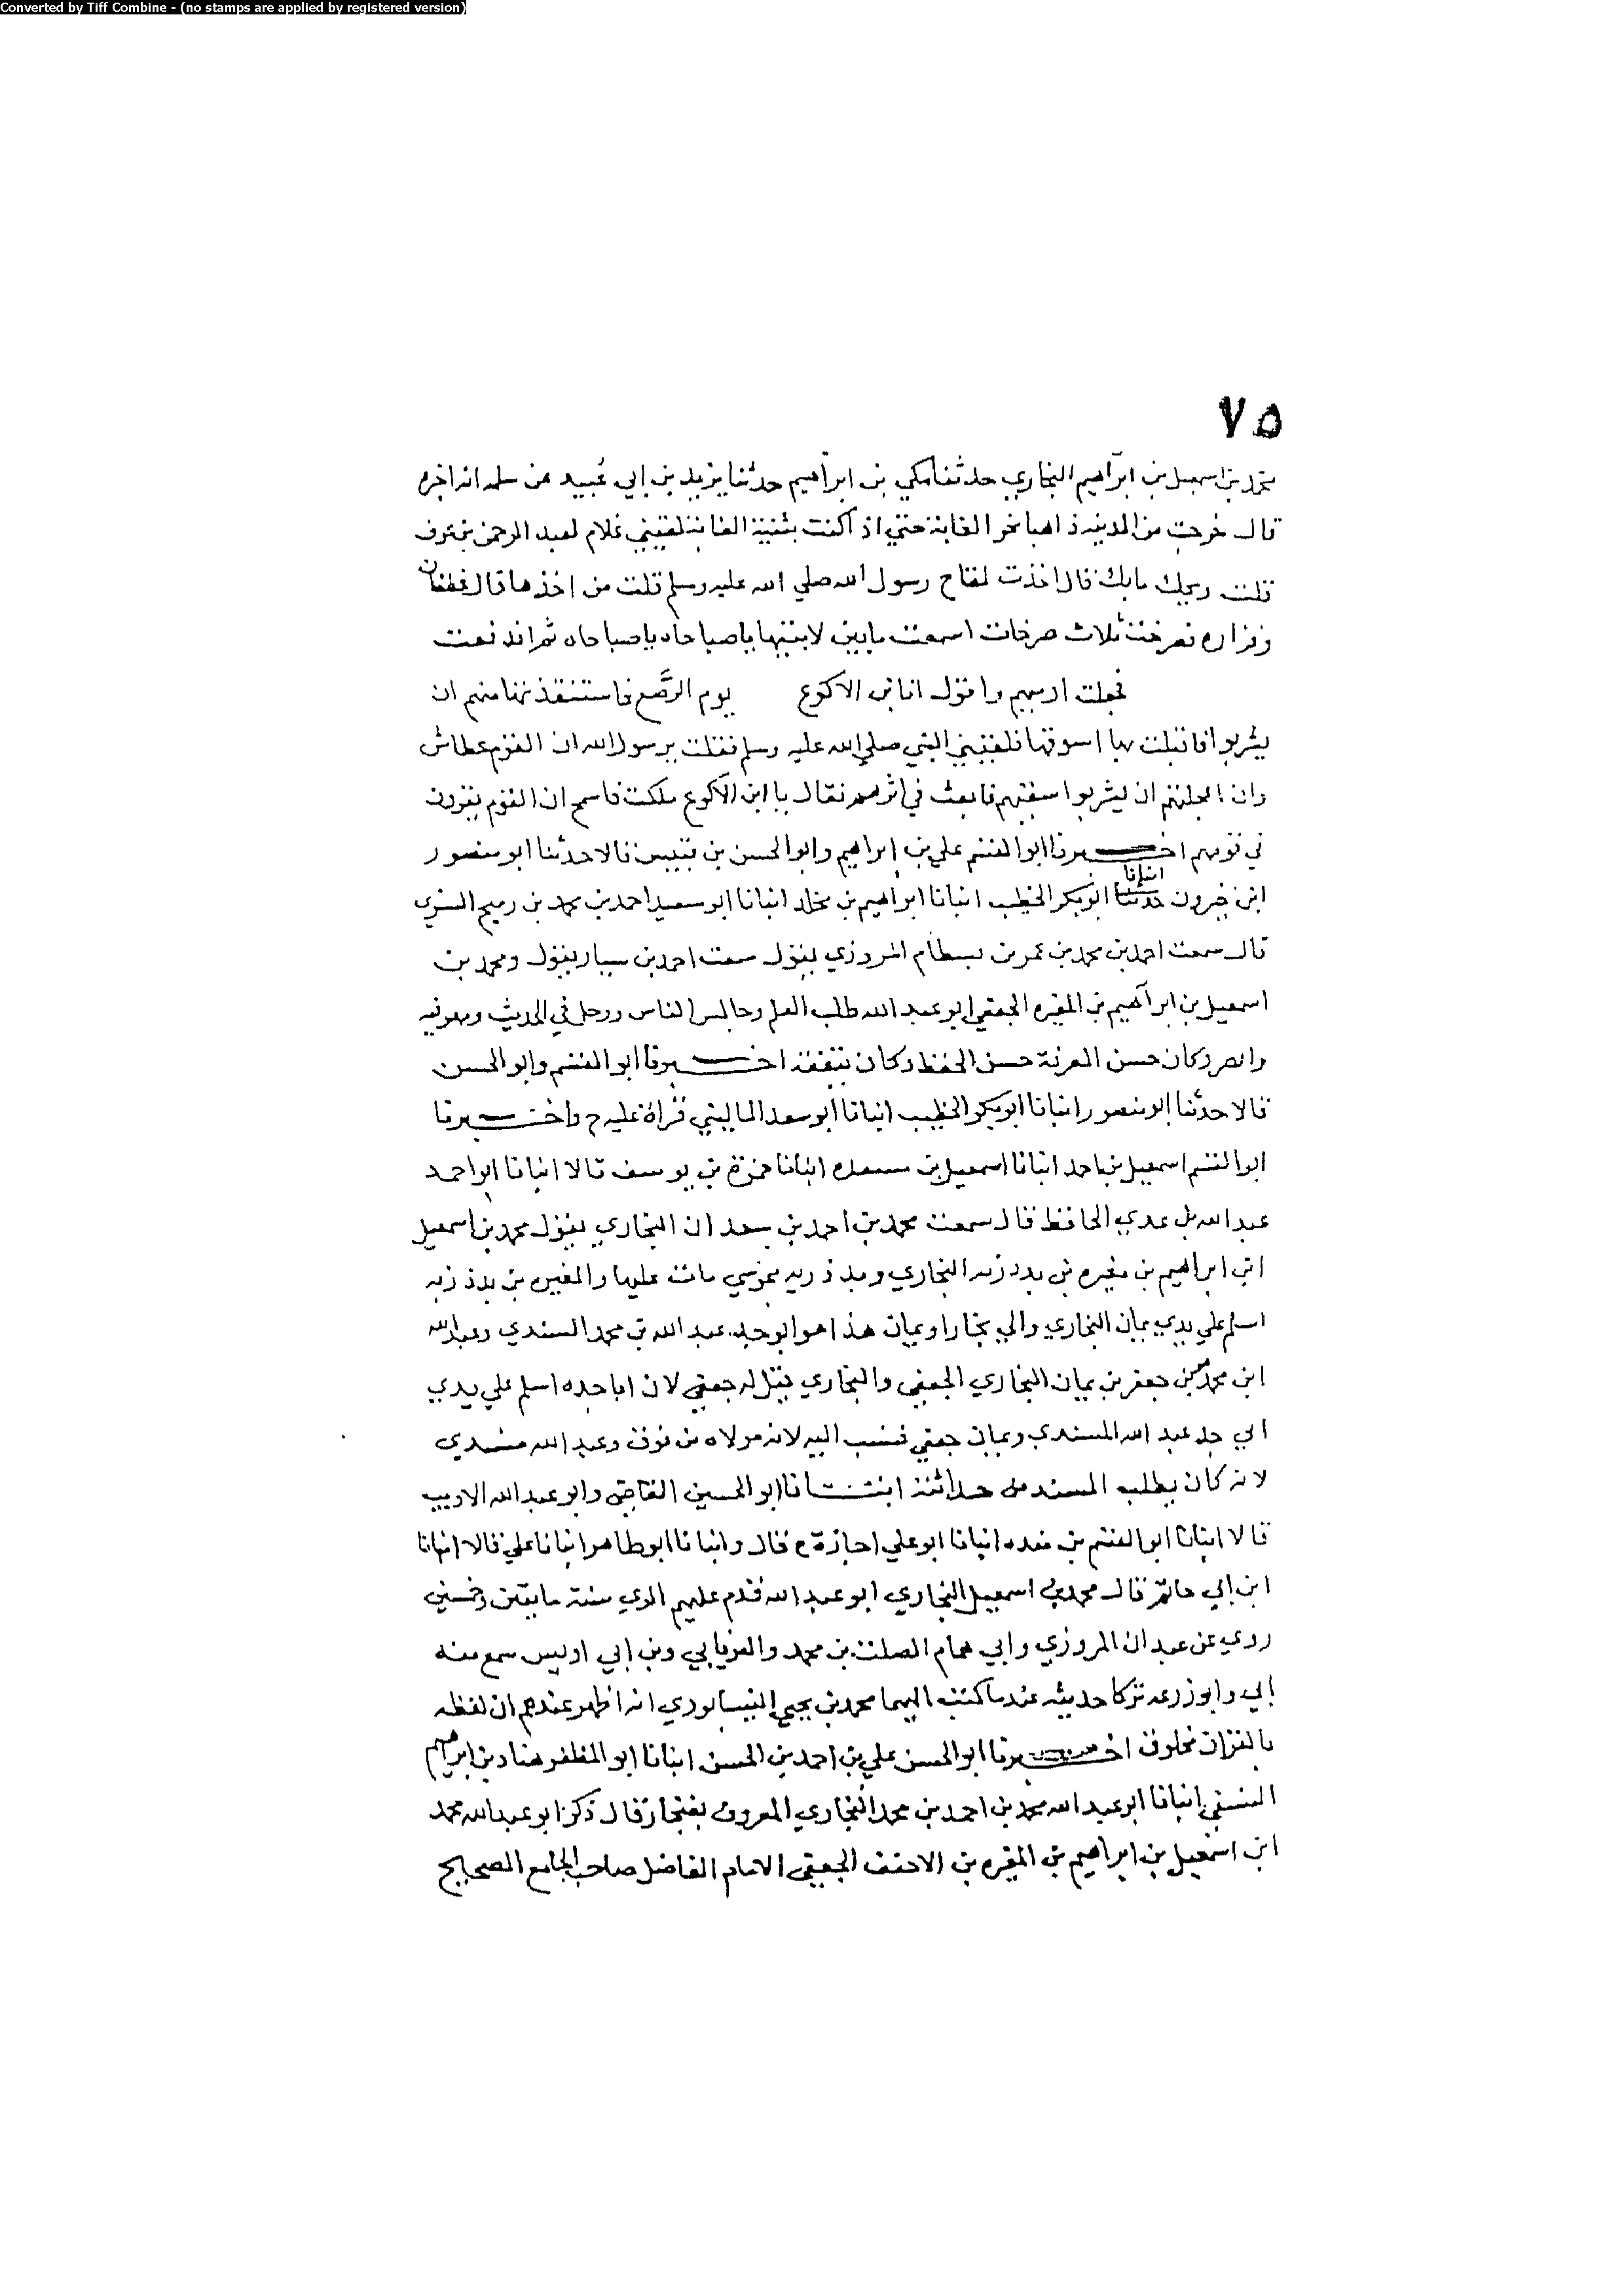 Converted by Tiff Combine - (no stamps are applied by registered version)
٧٥
محمد بن اسمعيل بن ابراهيم البخاري حدثنا مكي بن ابراهيم حدثنا يزيد بن ابي عُبيد عن سلمه انه اخبره
قال خرجت من المدينه ذاهبا نحو الغابة حتي اذ اكنت بثنية الغابة لقيني غلام لعبد الرحمن بن عوف
قلت ويحك مابك قال اخذت لقاح رسول الله صلي الله عليه وسلم قلت من اخذها قال غطفان
وفزاره فصرخت ثلاث صرخات اسمعت مابين لابتيها ياصباحاه ياصباحاه ثم اندفعت
فجعلت ارميهم واقول انا بن الاكوع يوم الرضَّع فاستنقذتها منهم ان
يشربوا فاقبلت بها اسوقها فلقيني النبي صلي الله عليه وسلم فقلت يرسول الله ان القوم عطاش
وان اعجلتهم ان يشربوا سقيهم فابعث في اثرهم فقال يا ابن الاكوع ملكت فاسجح ان القوم يقرون
في قومهم اخبرنا ابو القسم علي بن ابراهيم وابو الحسن بن قبيس قالا حدثنا ابو منصور
ابن خيرون حدثنا انبانا ابو بكر الخطيب انبانا ابراهيم بن مخلد انبانا ابو سعيد احمد بن محمد بن رميح النسوي
قال سمعت احمد بن محمد بن عمر بن بسطام المروزي يقول سمعت احمد بن سيار يقول ومحمد بن
اسمعيل بن ابراهيم بن المغيره الجعفي ابو عبد الله طلب العلم وجالس الناس ورحل في الحديث ومهر فيه
وابصر وكان حسن المعرفة حسن الحفظ وكان يتفقه اخبرنا ابو القسم وابو الحسن
قالا حدثنا ابو منصور انبانا ابو بكر الخطيب انبانا ابو سعد الماليني قراة عليه ح واخبرنا
ابو القسم اسمعيل بن احمد انبانا اسمعيل بن مسعده انبانا حمزة بن يوسف قالا انبانا ابو احمد
عبد الله بن عدي الحافظ قال سمعت محمد بن احمد بن سعدان البخاري يقول محمد بن اسمعيل
ابن ابراهيم بن مغيره بن بردزبه البخاري وبردزبه مجوسي مات عليها والمغيره بن بردزبه
اسلم علي يدي يمان البخاري والي بخارا ويمان هذا هو ابو جد عبد الله بن محمد المسندي وعبد الله
ابن محمد بن جعفر بن يمان البخاري الجعفي والبخاري قيل له جعفي لان ابا جده اسلم علي يدي
ابي جد عبد الله المسندي ويمان جعفي فنسب اليه لانه مولاه من فوق وعبد الله مسندي
لانه كان يطلب المسند من حداثته انبانا ابو الحسين القاضي وابو عبد الله الاديب
قالا انبانا ابو القسم بن منده انبانا ابو علي اجازة ح قال وانبانا ابو طاهر انبانا علي قالا انبانا
ابن ابي حاتم قال محمد بن اسمعيل البخاري ابو عبد الله قدم عليهم الري سنة مايتين وخمسين
روي عن عبدان المروزي وابي همام الصلت بن محمد والفريابي وبن ابي اويس سمع منه
ابي وابو زرعه تركا حديثه عندما كتب اليهما محمد بن يحيى النيسابوري انه اظهر عندهم ان لفظه
بالقران مخلوق اخبرنا ابو الحسن علي بن احمد بن الحسن انبانا ابو المظفر هناد بن ابراهيم
النسفي انبانا ابو عبد الله محمد بن احمد بن محمد البخاري المعروف بغنجار قال ذكر ابو عبد الله محمد
ابن اسمعيل بن ابراهيم بن المغيره بن الاحنف الجعفي الامام الفاضل صاحب الجامع الصحيح